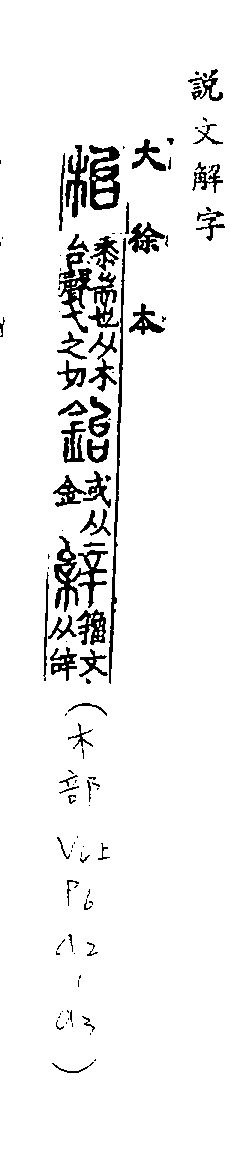 説文解字
大徐本
枱
耒耑也从木
台聲弋之切
鈶
或从
金
籀文
从辝
(木部 Vi上 P6 a2-a3)